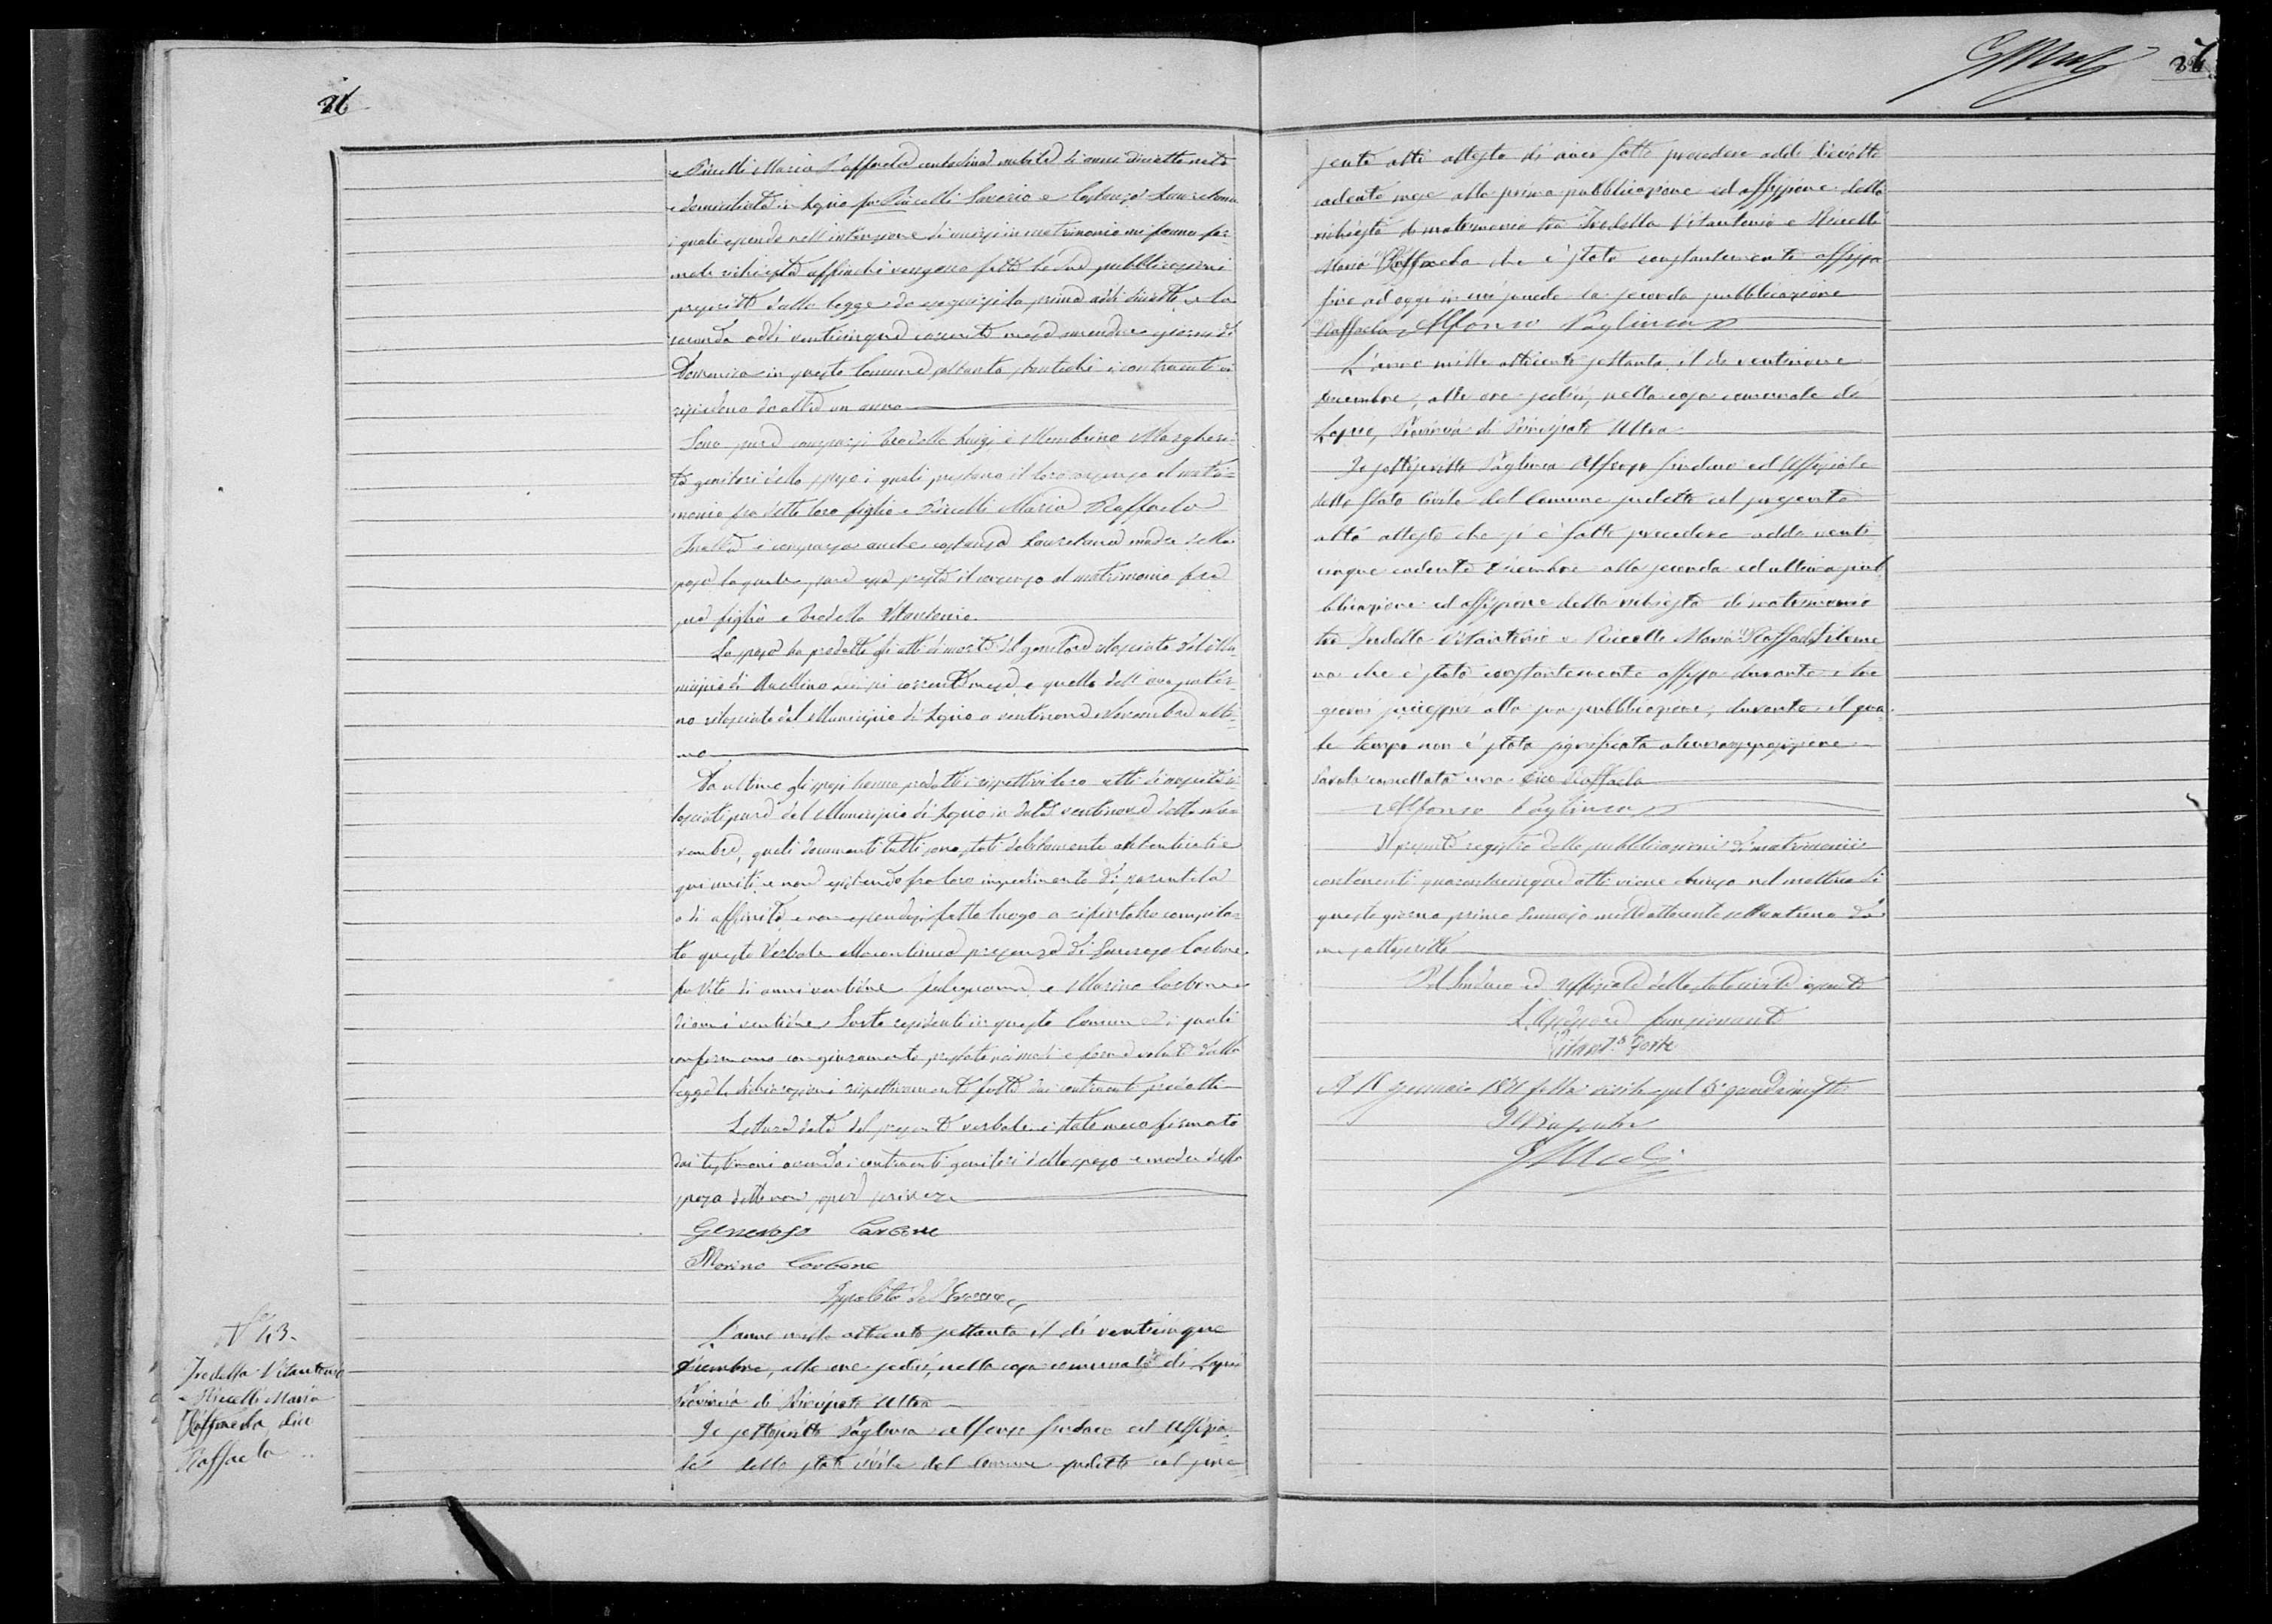 26
e Riccelli Maria Raffaela contadina nubile di anni diciotto nata
e domiciliata in Lapio fu Riccelli Saverio e Costanza Lauretana
i quali essendo nell'intenzione di unirsi in matrimonio mi fanno for-
male richiesta affinché vengano fatte le due pubblicazioni
prescritte dalla legge da eseguirsi la prima addì diciotto e la
seconda addì venticinque corrente mese amendue giorni di
Domenica in questo Comune soltanto stanteché i contraenti vi
risiedono da oltre un anno
Sono pure comparsi Iredella Luigi e Membrino Margheri-
ta genitori dello sposo i quali prestano il loro assenso al matri-
monio fra detto loro figlio e Riccelli Maria Raffaela
Inoltre è comparsa anche Costanza Lauretana madre della
sposa la quale pure essa presta il consenso al matrimonio fra
sua figlia e Iredella Vitantonio
La sposa ha prodotto gli atti di morte del genitore rilasciato dal Mu-
nicipio di Avellino corrente mese e quello dell'avo pater-
no rilasciato dal Municipio di Lapio a ventinove Novembre ulti-
mo
Da ultimo gli sposi hanno prodotto i rispettivi loro atti di nascita ri-
lasciati pure dal Municipio di Lapio in data ventinove detto No-
vembre, quali documenti tutti sono stati debitamente autenticati e
qui uniti e non esistendo fra loro impedimento di parentela
o di affinità e non essendosi fatto luogo a rifiuto ho compila-
to questo Verbale alla continua presenza di Generoso Carbone
fu Vito di anni ventinove falegname e Marino Carbone
di anni ventinove Sarto residenti in questo Comune i quali
confermano con giuramento prestato nei modi e forme volute dalla
legge le dichiarazioni rispettivamente fatte dai contraenti predetti
Lettura data del presente verbale è stato meco firmato
dai testimoni avendo i contraenti genitori dello sposo e madre della
sposa detto non saper scrivere
Generoso Carbone
Marino Carbone
Ippolito
N° 43.
Iredella Vitantonio
e Riccelli Maria
Raffaela dico
Raffaela
L'anno mille ottocento settanta il dì venticinque
Dicembre, alle ore sedici, nella casa comunale di Lapio
Provincia di Principato Ultra
Io sottoscritto Paglinca Alfonso Sindaco ed Uffizia-
le dello Stato Civile del Comune sudetto col pre-
27
sente atto attesto di aver fatto procedere addì diciotto
cadente mese alla prima pubblicazione ed affissione della
richiesta di matrimonio tra Iredella Vitantonio e Riccelli
Maria Raffaela che è stata constantemente affissa
fino ad oggi in cui procede la seconda pubblicazione
Raffaela Alfonso Paglinca
L'anno mille ottocento settanta, il dì ventinove
Dicembre, alle ore sedici, nella casa comunale di
Lapio, Provincia di Principato Ultra
Io sottoscritto Paglinca Alfonso Sindaco ed Uffiziale
dello Stato Civile del Comune sudetto col presente
atto attesto che si è fatto procedere addì venti
cinque cadente Dicembre alla seconda ed ultima pub
blicazione ed affissione della richiesta di matrimonio
tra Iredella Vitantonio e Riccelli Maria Raffaela Filome
na che è stata constantemente affissa durante i tre
giorni successivi alla sua pubblicazione, durante il qua-
le tempo non è stata significata alcuna opposizione
Parola cancellata una dico Raffaela
Alfonso Paglinca
Il presente registro delle pubblicazioni di matrimonio
contenenti quarantacinque atti viene chiuso nel mattino di
questo giorno primo Gennajo mille ottocento settantuno da
me sottoscritto
Pel Sindaco ed Uffiziale dello stato civile assente
L'Assessore funzionante
Vitant.° Forte
A 18 gennaio 1871 fatta visita pel 3° quadrimestre